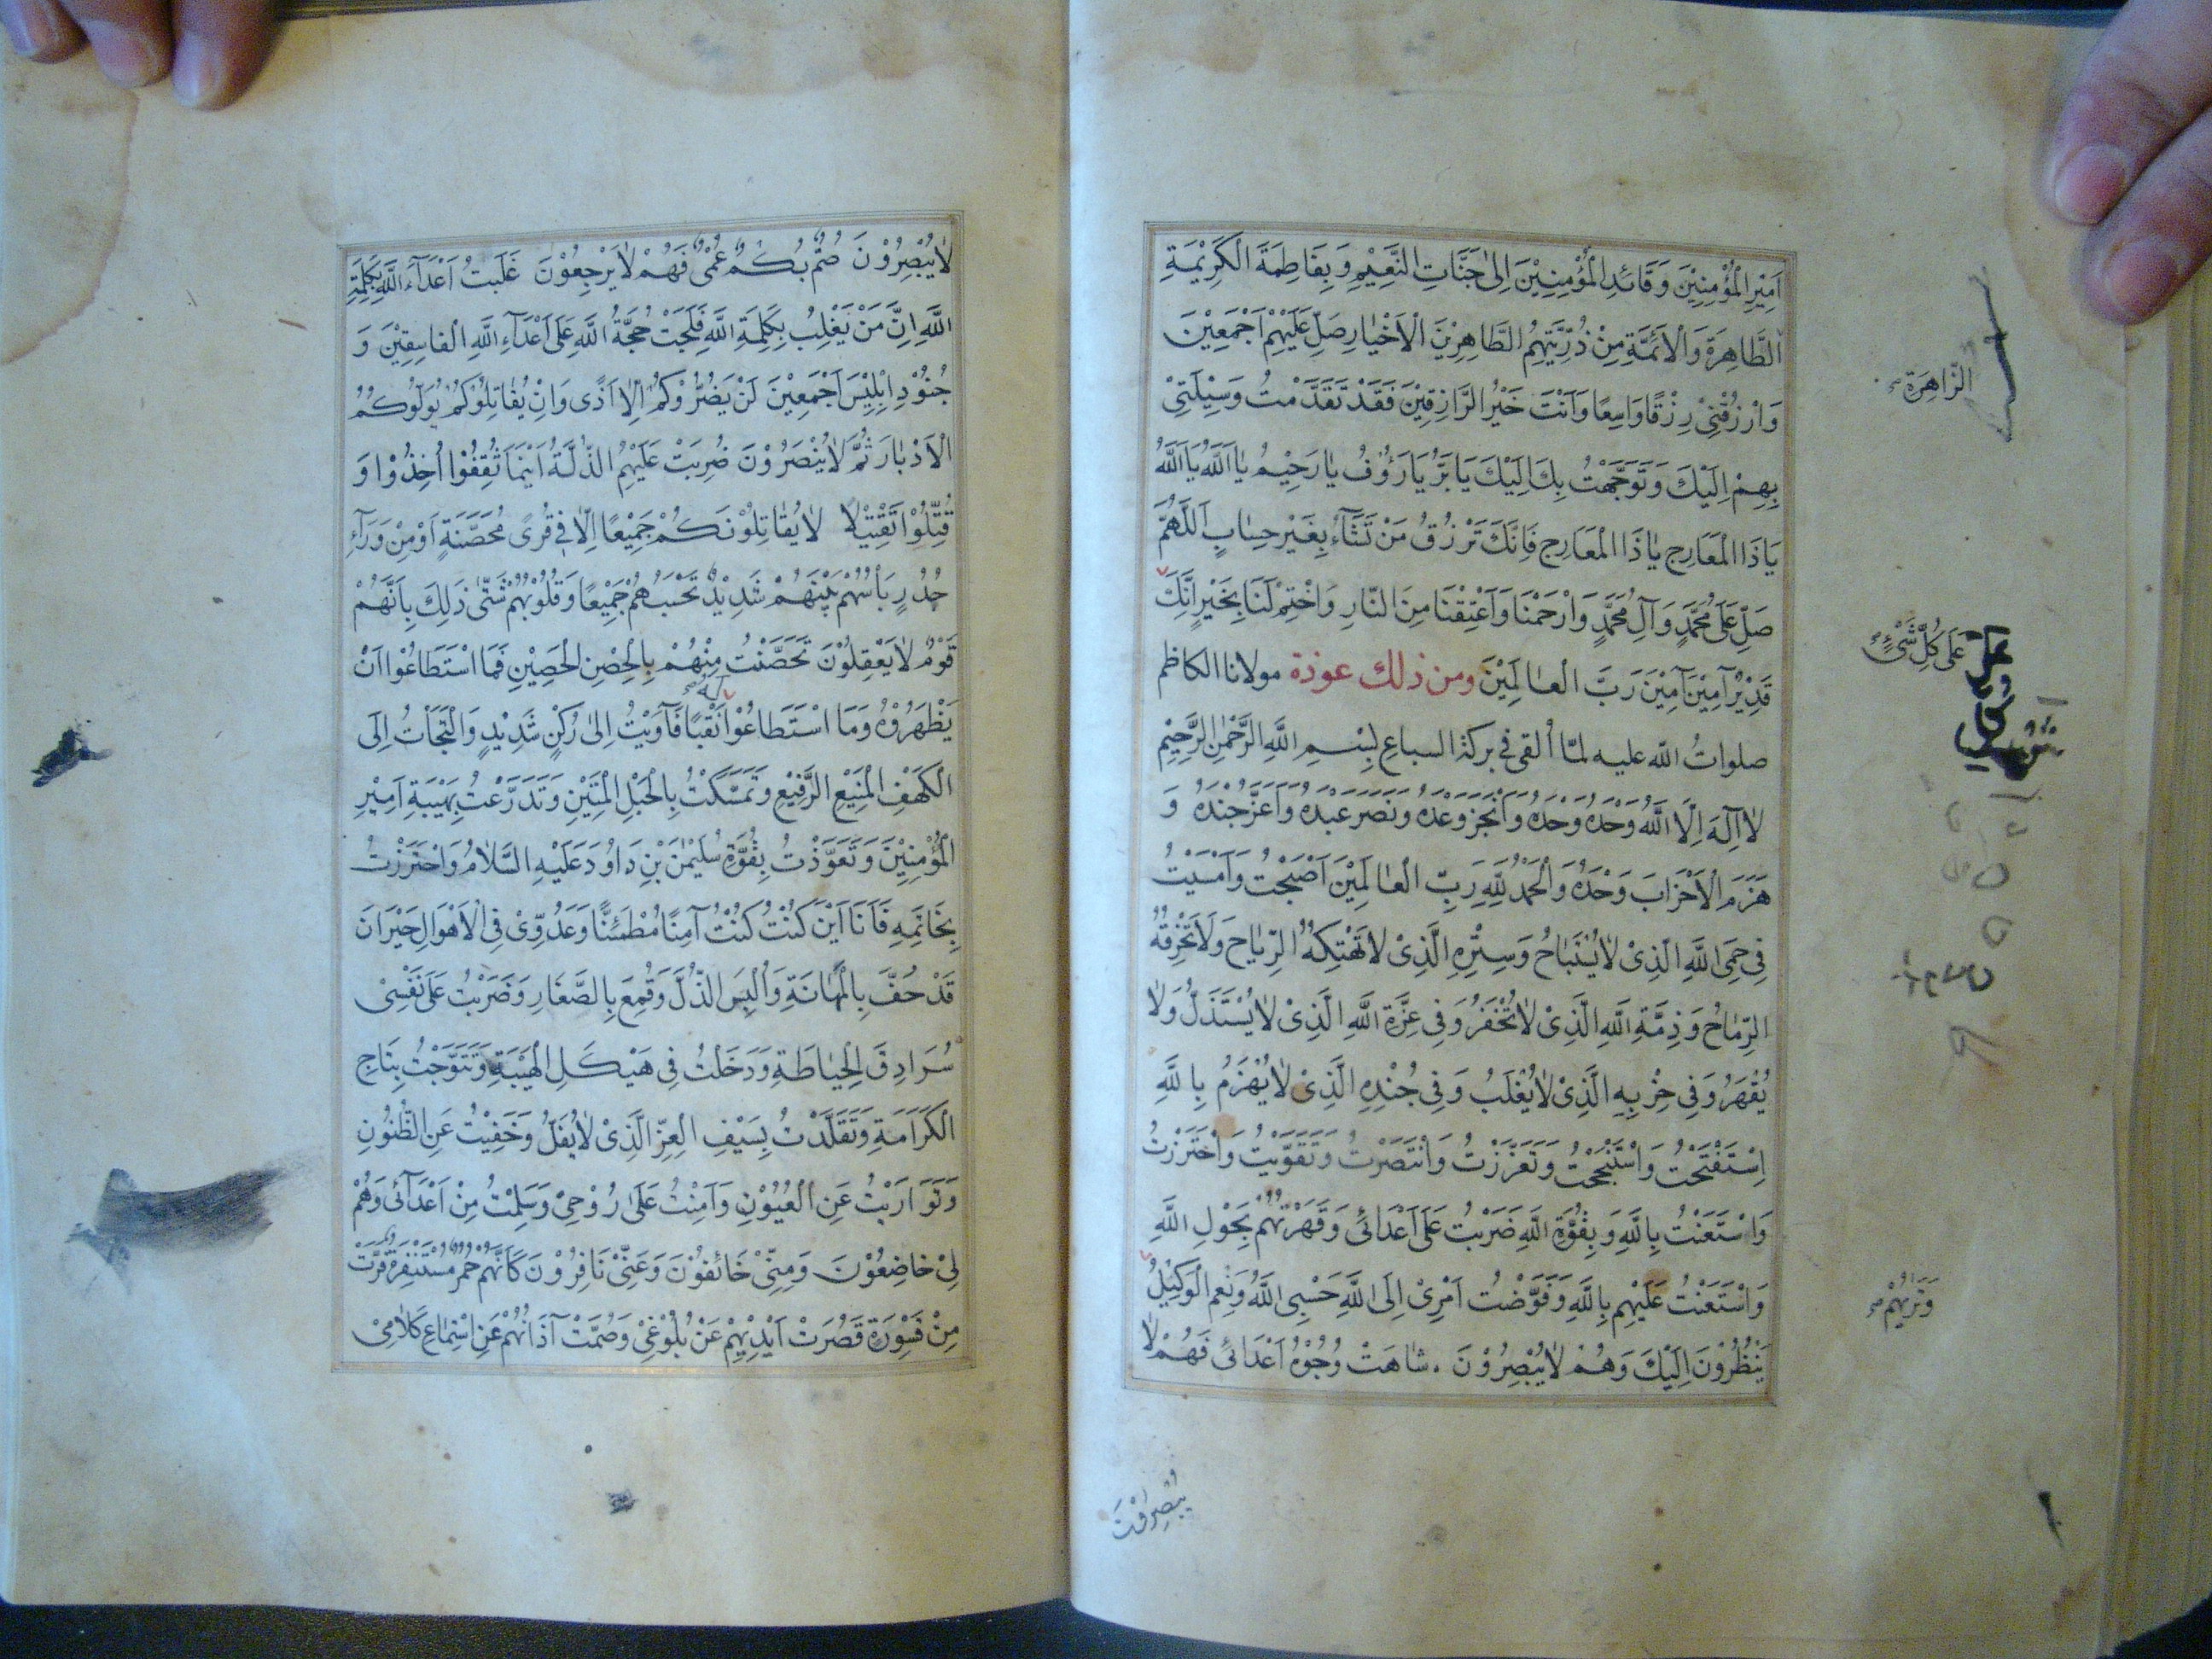 اَمِيْرِ الْمُؤْمِنِيْنَ وَقَائِدِ الْمُؤْمِنِيْنَ اِلىٰ جَنَّاتِ النَّعِيْمِ وَبِفَاطِمَةَ الْكَرِيْمَةِ
الطَّاهِرَةِ وَالْاَئِمَّةِ مِنْ ذُرِّيَّتِهِمُ الطَّاهِرِيْنَ الْاَخْيٰارِ صَلِّ عَلَيْهِمْ اَجْمَعِيْنَ
الزَّاهِرَةِ
وَارْزُقْنِيْ رِزْقًا وَاسِعًا وَاَنْتَ خَيْرُ الرَّازِقِيْنَ فَقَدْ تَقَدَّمْتُ وَسِيْلَتِيْ
بِهِمْ اِلَيْكَ وَتَوَجَّهْتُ بِكَ اِلَيْكَ يَا بَرُّ يَا رَؤُفُ يَا رَحِيْمُ يَا اَللّٰهُ يَا اَللّٰهُ
يَا ذَا الْمَعَارِجِ يَا ذَا الْمَعَارِجِ فَاِنَّكَ تَرْزُقُ مَنْ تَشَآءُ بِغَيْرِ حِسَابٍ اَللّٰهُمَّ
صَلِّ عَلىٰ مُحَمَّدٍ وَآلِ مُحَمَّدٍ وَارْحَمْنَا وَاَعْتِقْنَا مِنَ النّٰارِ وَاخْتِمْ لَنَا بِخَيْرٍ اِنَّكَ
عَلىٰ كُلِّ شَيْءٍ
قَدِيْرٌ آمِيْنَ آمِيْنَ رَبَّ الْعٰالَمِيْنَ ومن ذلك عوذة مولانا الكاظم
صلواتُ اللّه عليه لمّا اُلقى فى بركة السباعِ بِسْمِ اللّٰهِ الرَّحْمٰنِ الرَّحِيْمِ
لٰا اِلٰهَ اِلَّا اللّٰهُ وَحْدَهُ وَحْدَهُ وَحْدَهُ وَاَنْجَزَ وَعْدَهُ وَنَصَرَ عَبْدَهُ وَاَعَزَّ جُنْدَهُ وَ
هَزَمَ الْاَحْزَابَ وَحْدَهُ وَالْحَمْدُ لِلّٰهِ رَبِّ الْعٰالَمِيْنَ اَصْبَحْتُ وَاَمْسَيْتُ
فِيْ حِمَى اللّٰهِ الَّذِيْ لٰا يُسْتَبٰاحُ وَسِتْرِهِ الَّذِيْ لٰا تَهْتِكُهُ الرِّيٰاحُ وَلَا تَخْرِقُهُ
الرِّمٰاحُ وَذِمَّةِ اللّٰهِ الَّذِيْ لٰا تُخْفَرُ وَفِي عِزَّةِ اللّٰهِ الَّذِيْ لٰا يُسْتَذَلُّ وَلٰا
يُقْهَرُ وَفِي حِزْبِهِ الَّذِيْ لٰا يُغْلَبُ وَفِي جُنْدِهِ الَّذِيْ لٰا يُهْزَمُ بِاللّٰهِ
اِسْتَفْتَحْتُ وَاسْتَنْجَحْتُ وَتَعَزَّزْتُ وَانْتَصَرْتُ وَتَقَوَّيْتُ وَاحْتَرَزْتُ
وَاسْتَعَنْتُ بِاللّٰهِ وَبِقُوَّةِ اللّٰهِ ضَرَبْتُ عَلىٰ اَعْدَائِيْ وَقَهَرْتُهُمْ بِحَوْلِ اللّٰهِ
وَاسْتَعَنْتُ عَلَيْهِمْ بِاللّٰهِ وَفَوَّضْتُ اَمْرِيْ اِلَى اللّٰهِ حَسْبِيَ اللّٰهُ وَنِعْمَ الْوَكِيْلُ
وَتَرٰيهُمْ
يَنْظُرُوْنَ اِلَيْكَ وَهُمْ لٰا يُبْصِرُوْنَ . شٰاهَتْ وُجُوْهُ اَعْدَائِيْ فَهُمْ لٰا
لٰا يُبْصِرُوْنَ صُمٌّ بُكْمٌ عُمْيٌ فَهُمْ لٰا يَرْجِعُوْنَ غَلَبْتُ اَعْدَآءَ اللّٰهِ بِكَلِمَةِ
اللّٰهِ اِنَّ مَنْ يَغْلِبُ بِكَلِمَةِ اللّٰهِ فَلَجَتْ حُجَّةُ اللّٰهِ عَلىٰ اَعْدَآءِ اللّٰهِ الْفٰاسِقِيْنَ وَ
جُنُوْدِ اِبْلِيْسَ اَجْمَعِيْنَ لَنْ يَضُرُّوْكُمْ اِلّٰا اَذًى وَاِنْ يُقَاتِلُوْكُمْ يُوَلُّوْكُمُ
الْاَدْبٰارَ ثُمَّ لٰا يُنْصَرُوْنَ ضُرِبَتْ عَلَيْهِمُ الذِّلَّةُ اَيْنَمَا ثُقِفُوْا اُخِذُوْا وَ
قُتِّلُوْا تَقْتِيْلًا لٰا يُقَاتِلُوْنَكُمْ جَمِيْعًا اِلّٰا فِي قُرًى مُحَصَّنَةٍ اَوْ مِنْ وَرَآءِ
جُدُرٍ بَأْسُهُمْ بَيْنَهُمْ شَدِيْدٌ تَحْسَبُهُمْ جَمِيْعًا وَقُلُوْبُهُمْ شَتّٰى ذٰلِكَ بِاَنَّهُمْ
قَوْمٌ لٰا يَعْقِلُوْنَ تَحَصَّنْتُ مِنْهُمْ بِالْحِصْنِ الْحَصِيْنِ فَمَا اسْتَطَاعُوْا اَنْ
يَظْهَرُوْهُ وَمَا اسْتَطَاعُوْا لَهُ نَقْبًا فَآوَيْتُ اِلىٰ رُكْنٍ شَدِيْدٍ وَالْتَجَأْتُ اِلَى
الْكَهْفِ الْمَنِيْعِ الرَّفِيْعِ وَتَمَسَّكْتُ بِالْحَبْلِ الْمَتِيْنِ وَتَدَرَّعْتُ بِهَيْبَةِ اَمِيْرِ
الْمُؤْمِنِيْنَ وَتَعَوَّذْتُ بِقُوَّةِ سُلَيْمٰنَ بْنِ دَاوُدَ عَلَيْهِ السَّلَامُ وَاحْتَرَزْتُ
بِخَاتَمِهِ فَاَنَا اَيْنَ كُنْتُ كُنْتُ آمِنًا مُطْمَئِنًّا وَعَدُوِّيْ فِي الْاَهْوَالِ حَيْرَانَ
قَدْ حُفَّ بِالْمَهَانَةِ وَاُلْبِسَ الذُّلَّ وَقُمِعَ بِالصَّغَارِ وَضَرَبْتُ عَلىٰ نَفْسِيْ
سُرَادِقَ الْحِيَاطَةِ وَدَخَلْتُ فِي هَيْكَلِ الْهَيْبَةِ وَتَتَوَّجْتُ بِتَاجِ
الْكَرَامَةِ وَتَقَلَّدْتُ بِسَيْفِ الْعِزِّ الَّذِيْ لٰا يُفَلُّ وَخَفِيْتُ عَنِ الظُّنُوْنِ
وَتَوَارَيْتُ عَنِ الْعُيُوْنِ وَاَمِنْتُ عَلىٰ رُوْحِيْ وَسَلِمْتُ مِنْ اَعْدَآئِيْ وَهُمْ
لِيْ خَاضِعُوْنَ وَمِنِّيْ خَائِفُوْنَ وَعَنِّيْ نَافِرُوْنَ كَاَنَّهُمْ حُمُرٌ مُسْتَنْفِرَةٌ فَرَّتْ
مِنْ قَسْوَرَةٍ قَصُرَتْ اَيْدِيْهِمْ عَنْ بُلُوْغِيْ وَصُمَّتْ آذَانُهُمْ عَنِ اسْتِمَاعِ كَلَامِيْ